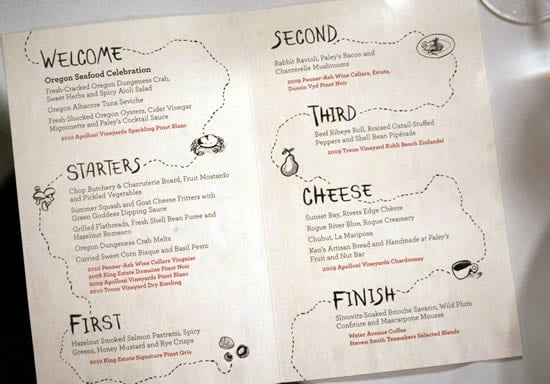 WELCOME
Oregon Seafood Celebration
Fresh-Cracked Oregon Dungeness Crab,
Sweet Herbs and Spicy Aioli Salad
Oregon Albacore Tuna Seviche
Fresh-Shucked Oregon Oysters, Cider Vinegar
Mignonette and Paley's Cocktail Sauce
2010 Apolloni Vineyards Sparkling Pinot Blanc
STARTERS
Chop Butchery & Charcuterie Board, Fruit Mostardo
and Pickled Vegetables
Summer Squash and Goat Cheese Fritters with
Green Goddess Dipping Sauce
Grilled Flatbreads, Fresh Shell Bean Puree and
Hazelnut Romesco
Oregon Dungeness Crab Melts
Curried Sweet Corn Bisque and Basil Pesto
2010 Penner-Ash Wine Cellars Viognier
2008 King Estate Domaine Pinot Noir
2009 Apolloni Vineyards Pinot Blanc
2010 Troon Vineyard Dry Riesling
FIRST
Hazelnut Smoked Salmon Pastrami, Spicy
Greens, Honey Mustard and Rye Crisps
2010 King Estate Signature Pinot Gris
SECOND
Rabbit Ravioli, Paley's Bacon and
Chanterelle Mushrooms
2009 Penner-Ash Wine Cellars, Estate,
Dussin Vyd Pinot Noir
THIRD
Beef Ribeye Roll, Braised Oxtail-Stuffed
Peppers and Shell Bean Pipérade
2009 Troon Vineyard Kubli Bench Zinfandel
CHEESE
Sunset Bay, Rivers Edge Chèvre
Rogue River Blue, Rogue Creamery
Chubut, La Mariposa
Ken's Artisan Bread and Handmade at Paley's
Fruit and Nut Bar
2009 Apolloni Vineyards Chardonnay
FINISH
Slivovitz-Soaked Brioche Savarin, Wild Plum
Confiture and Mascarpone Mousse
Water Avenue Coffee
Steven Smith Teamakers Selected Blends